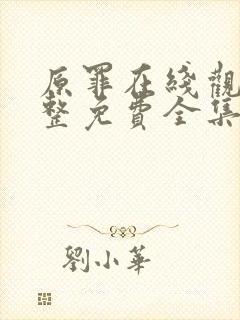 原罪在綫觀
整免費全集
劉小華